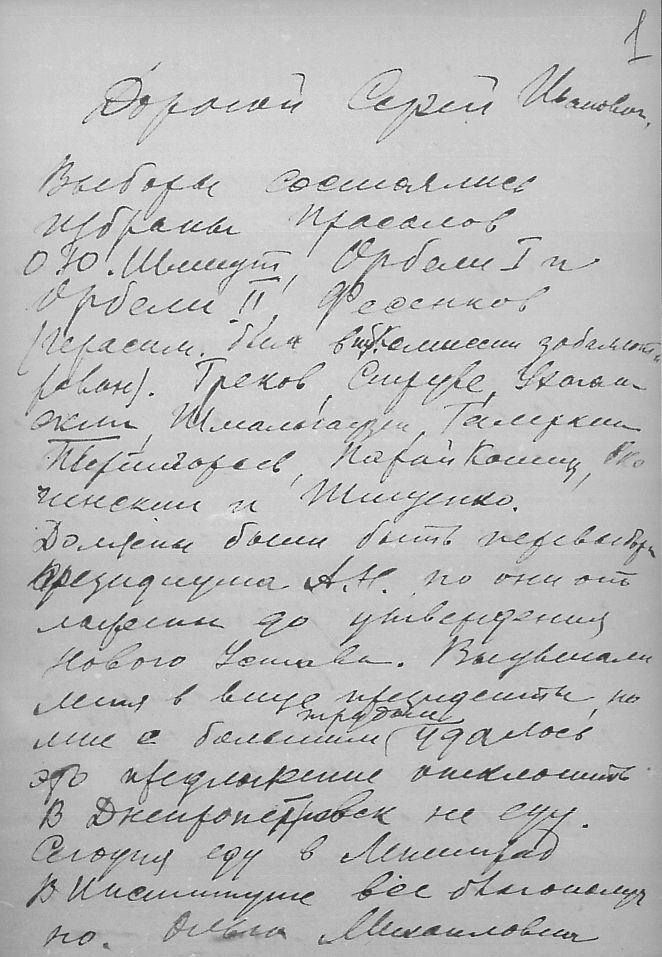 1
Дорогой Сергей Иванович,
Выборы состоялись
избраны Прасолов
О.Ю. Шмидт, Орбели I и
Орбели II, Фесенков
(Герасим. был в Комиссии забаллоти
рован). Греков, Струве,
Шмальгаузен, Галеркин
Терпигорев, Порай Кошиц,
чинский и Тищенко.
Должны были быть перевыборы
Президиума А.Н. но они от
ложены до утверждения
Нового Устава. Выдвигали
меня в вице президенты, но
мне с большим трудом удалось
это предложение отклонить
В Днепропетровск не еду.
Сегодня еду в Ленинград
В Институте все благополуч
но. Ольга Михайловна